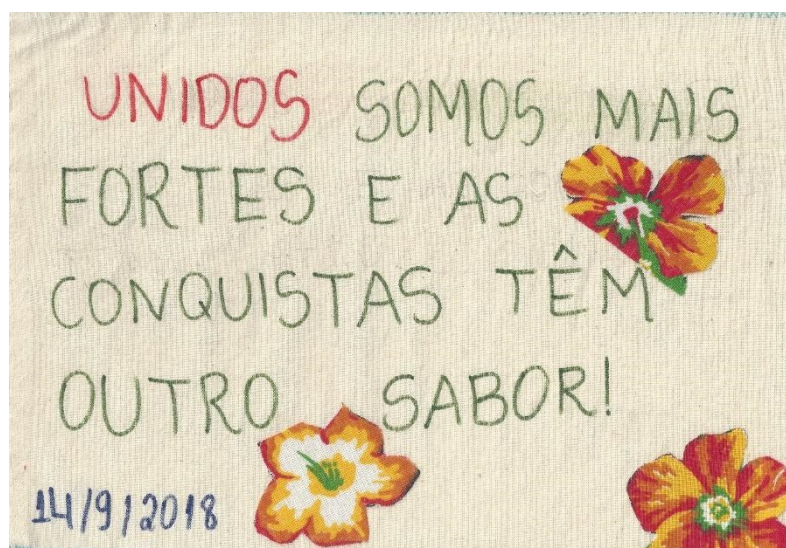 UNIDOS SOMOS MAIS
FORTES E AS
CONQUISTAS TÊM
OUTRO SABOR!
14/9/2018